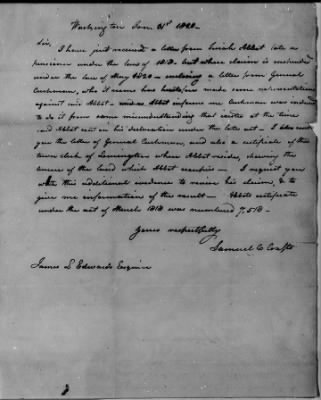 Washington Jan. 31st
Sir,
I have just received a letter from Abbot late a
pensioner under the law of 1818. but whose claim is
under the law of May 1820 – enclosing a letter from General
Cushman, who it seems has heretofore made some representations
against Abbot – Abbot informs me Cushman was induced
to do it from some misunderstanding that existed at the time
said Abbot sent on his declaration under the late act – I also send
you the letter of General Cushman, and also a certificate of the
town clerk of Lemington where Abbot resides, showing the
tenure of the land which Abbot occupies – I request you
with this additional evidence to review his claim, & to
give me information of the result – Abbots certificate
under the act of March 1818 was numbered 7,513 –
Yours respectfully
Samuel C Crafts
James L Edwards Esquire